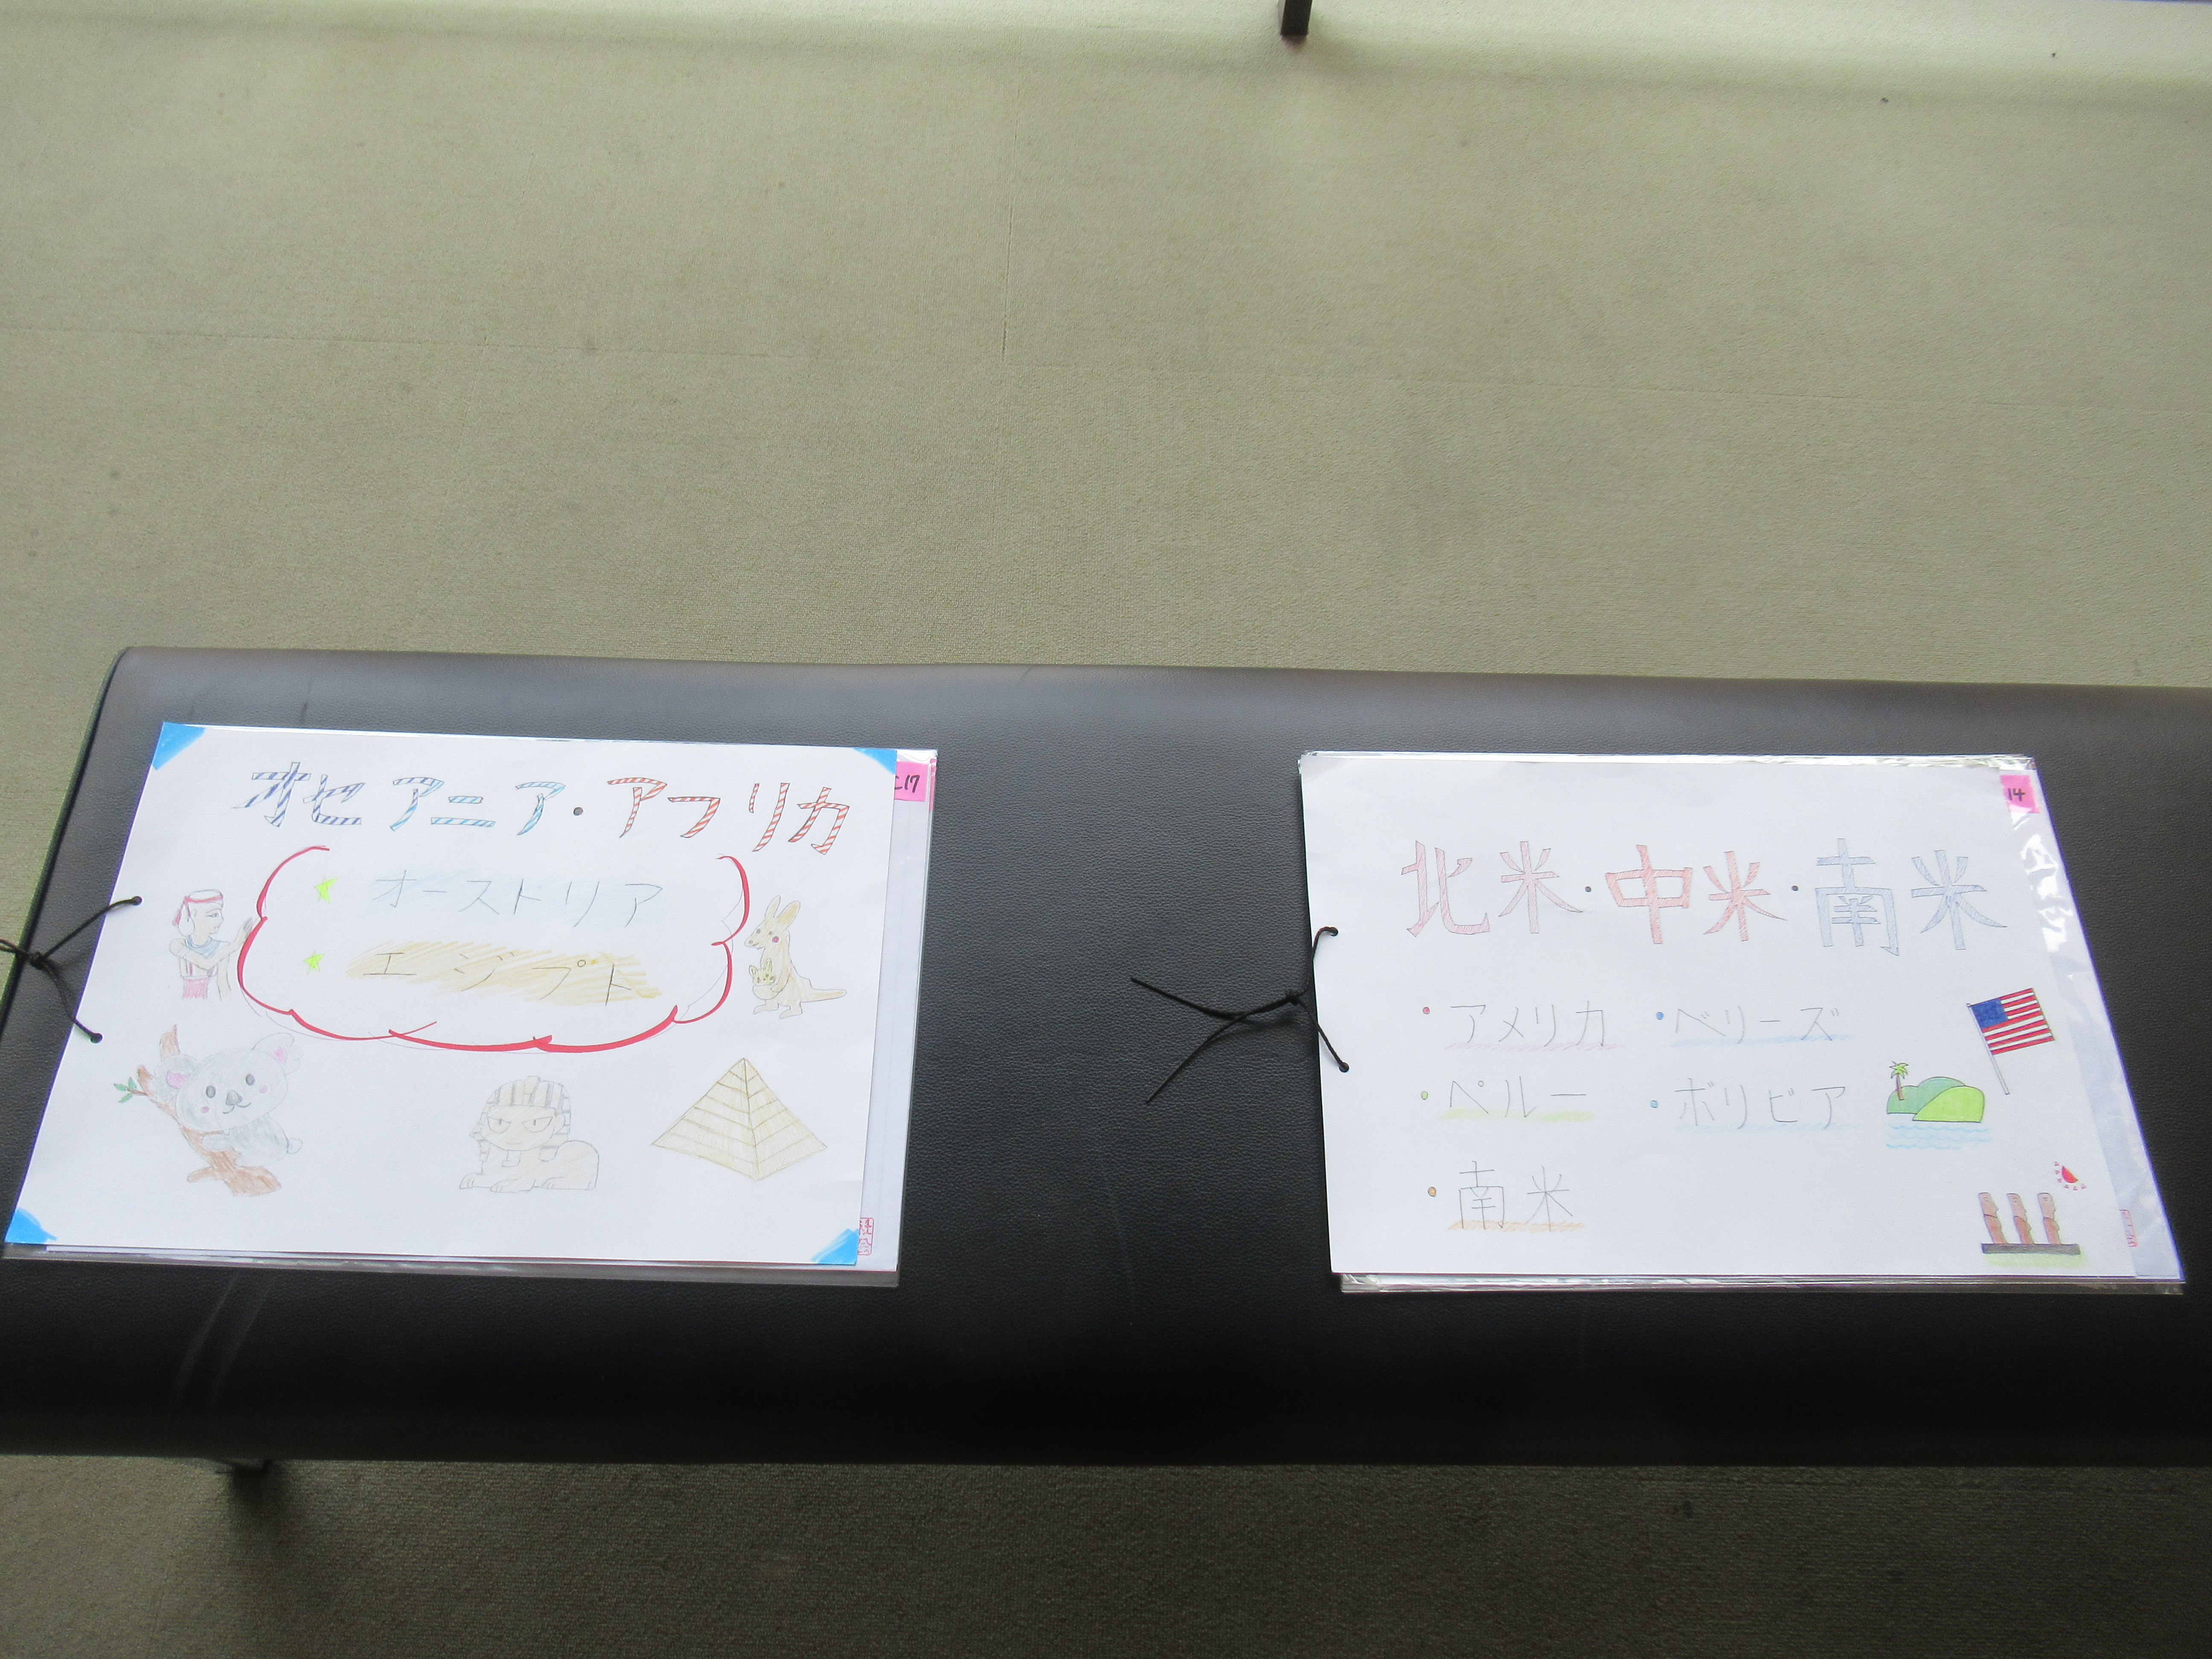 オセアニア・アフリカ
オーストリア
エジプト
17
北米・中米・南米
・アメリカ ・ベリーズ
・ペルー ・ボリビア
・南米
14